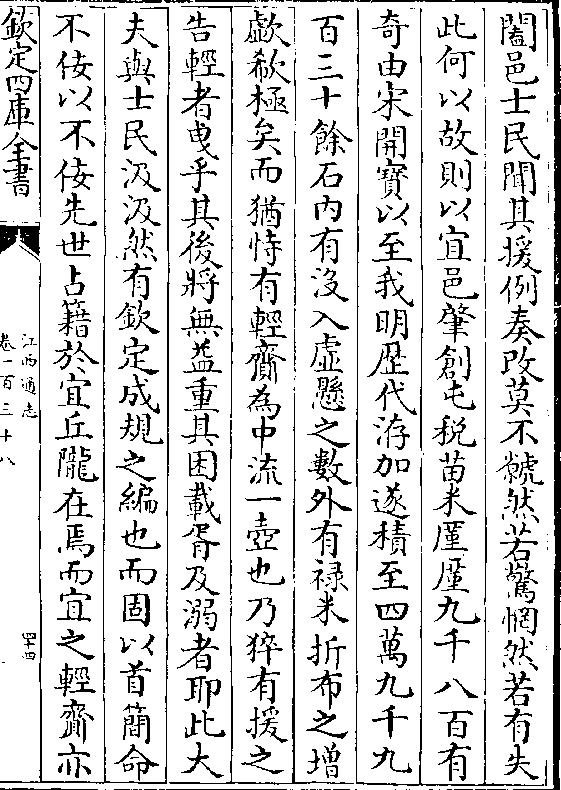 闔邑士民聞其援例奏改莫不虩然若驚惘然若有失
此何以故則以宜邑肇創屯税苗米厪厪九千八百有
奇由宋開寳以至我明歴代洊加遂積至四萬九千九
百三十餘石内有沒入虚懸之數外有禄米折布之増
歔欷極矣而猶恃有輕齎為中流一壺也乃猝有援之
告輕者曵乎其後將無益重其困載胥及溺者耶此大
夫與士民汲汲然有欽定成規之編也而固以首簡命
不佞以不佞先世占籍於宜丘隴在焉而宜之輕齎亦
欽定四庫全書
江西通志
卷一百三十八
四十四